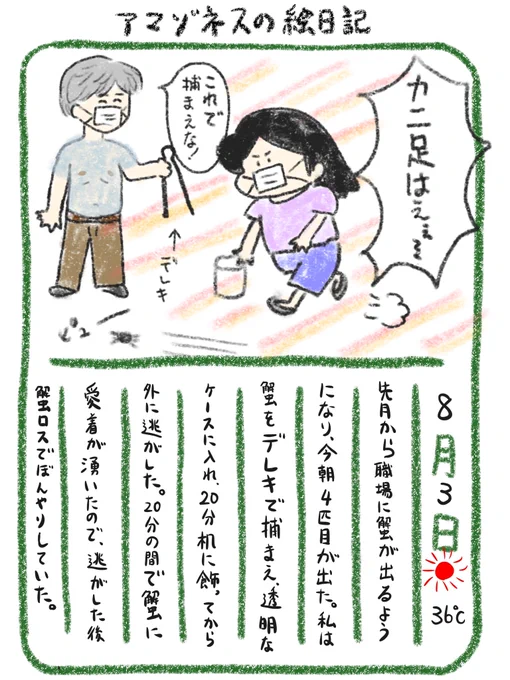 アマゾネスの絵日記
カニ足はえぇぇ
これで
捕まえな!
デレキ
ピュー
8月3日
36℃
先月から職場に蟹が出るよう
になり、今朝4匹目が出た。私は
蟹をデレキで捕まえ、透明な
ケースに入れ、20分机に飾ってから
外に逃がした。20分の間で蟹に
愛着が湧いたので、逃がした後
蟹ロスでぼんやりしていた。